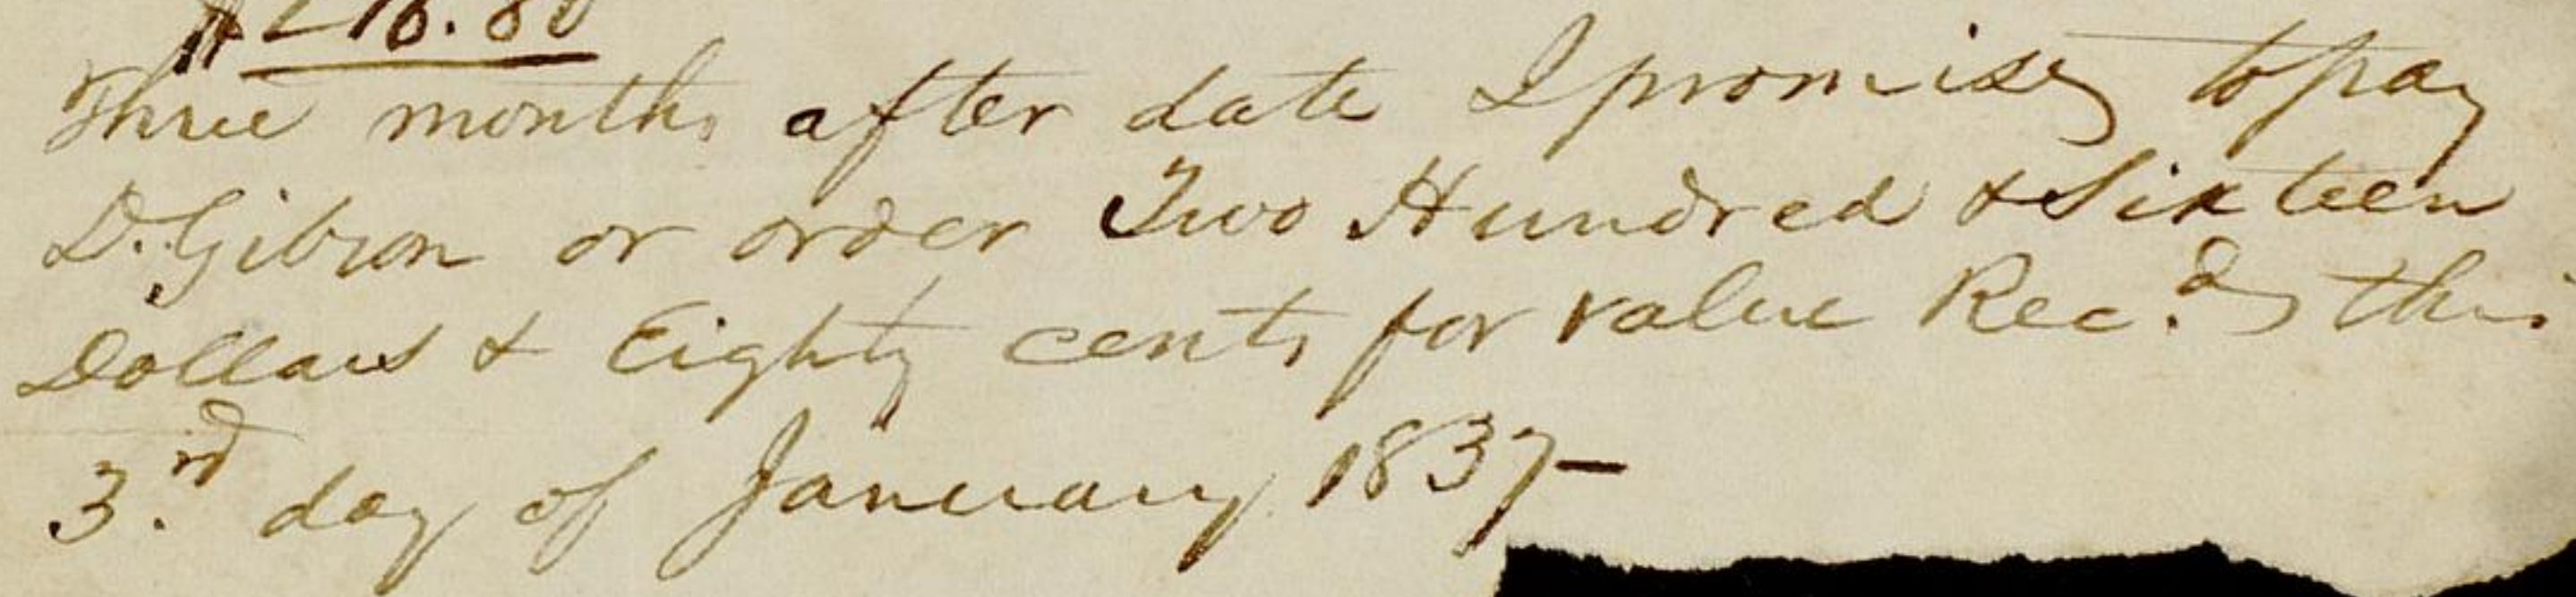 $216.80
Three months after date I promise to pay
D. Gibson or order Two Hundred & Sixteen
Dollars & Eighty cents for value Rec.d this
3.rd day of January 1837—